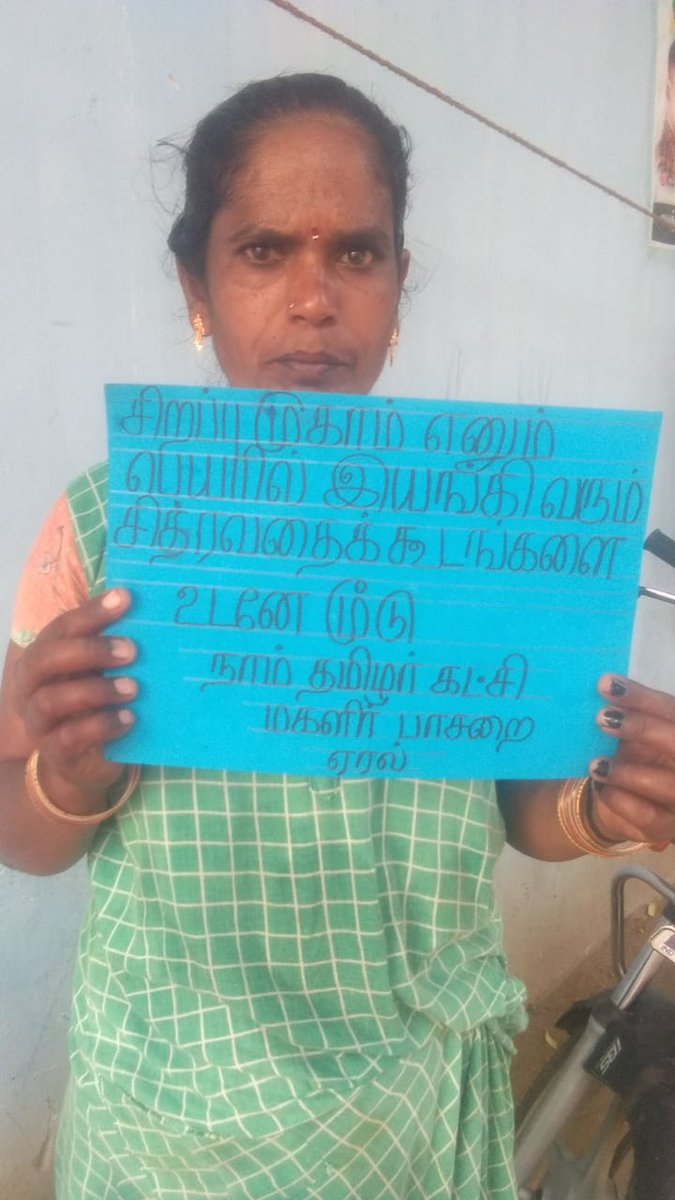 சிறப்பு முகாம் எனும்
பெயரில் இயங்கி வரும்
சித்ரவதைக் கூடங்களை
உடனே மூடு
நாம் தமிழர் கட்சி
மகளிர் பாசறை
ஏரல்